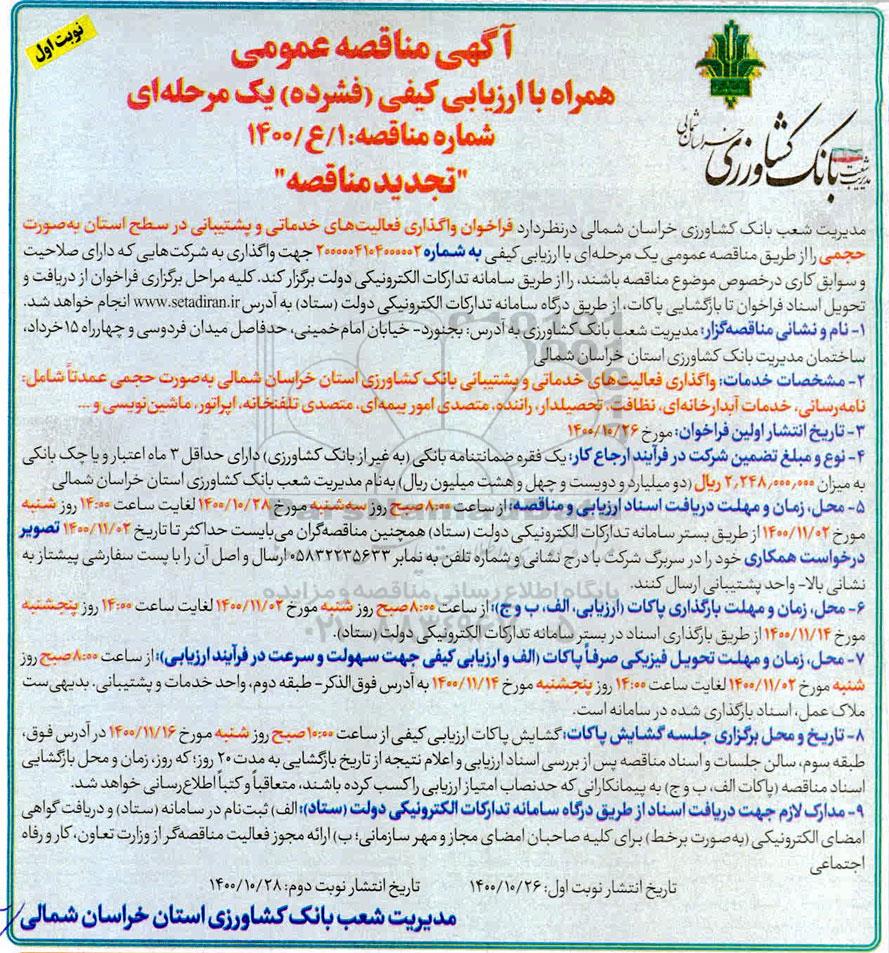 نوبت اول
آگهی مناقصه عمومی
همراه با ارزیابی کیفی (فشرده) یک مرحله‌ای
شماره مناقصه: ۱/ع/۱۴۰۰
"تجدید مناقصه"
مدیریت شعب بانک کشاورزی خراسان شمالی
مدیریت شعب بانک کشاورزی خراسان شمالی درنظردارد فراخوان واگذاری فعالیت‌های خدماتی و پشتیبانی در سطح استان به‌صورت
حجمی را از طریق مناقصه عمومی یک مرحله‌ای با ارزیابی کیفی به شماره ۲۰۰۰۰۰۴۱۰۴۰۰۰۰۰۲ جهت واگذاری به شرکت‌هایی که دارای صلاحیت
و سوابق کاری درخصوص موضوع مناقصه باشند، را از طریق سامانه تدارکات الکترونیکی دولت برگزار کند. کلیه مراحل برگزاری فراخوان از دریافت و
تحویل اسناد فراخوان تا بازگشایی پاکات، از طریق درگاه سامانه تدارکات الکترونیکی دولت (ستاد) به آدرس www.setadiran.ir انجام خواهد شد.
۱- نام و نشانی مناقصه‌گزار: مدیریت شعب بانک کشاورزی به آدرس: بجنورد- خیابان امام خمینی، حدفاصل میدان فردوسی و چهارراه ۱۵ خرداد،
ساختمان مدیریت بانک کشاورزی استان خراسان شمالی
۲- مشخصات خدمات: واگذاری فعالیت‌های خدماتی و پشتیبانی بانک کشاورزی استان خراسان شمالی به‌صورت حجمی عمدتاً شامل:
نامه‌رسانی، خدمات آبدارخانه‌ای، نظافت، تحصیلدار، راننده، متصدی امور بیمه‌ای، متصدی تلفنخانه، اپراتور، ماشین‌نویسی و ...
۳- تاریخ انتشار اولین فراخوان: مورخ ۱۴۰۰/۱۰/۲۶
۴- نوع و مبلغ تضمین شرکت در فرآیند ارجاع کار: یک فقره ضمانتنامه بانکی (به غیر از بانک کشاورزی) دارای حداقل ۳ ماه اعتبار و یا چک بانکی
به میزان ۲,۲۴۸,۰۰۰,۰۰۰ ریال (دو میلیارد و دویست و چهل و هشت میلیون ریال) به‌نام مدیریت شعب بانک کشاورزی استان خراسان شمالی
۵- محل، زمان و مهلت دریافت اسناد ارزیابی و مناقصه: از ساعت ۸:۰۰ صبح روز سه‌شنبه مورخ ۱۴۰۰/۱۰/۲۸ لغایت ساعت ۱۴:۰۰ روز شنبه
مورخ ۱۴۰۰/۱۱/۰۲ از طریق بستر سامانه تدارکات الکترونیکی دولت (ستاد) همچنین مناقصه‌گران می‌بایست حداکثر تا تاریخ ۱۴۰۰/۱۱/۰۲ تصویر
درخواست همکاری خود را در سربرگ شرکت با درج نشانی و شماره تلفن به نمابر ۰۵۸۳۲۲۳۵۶۳۳ ارسال و اصل آن را با پست سفارشی پیشتاز به
نشانی بالا- واحد پشتیبانی ارسال کنند.
۶- محل، زمان و مهلت بارگذاری پاکات (ارزیابی، الف، ب و ج): از ساعت ۸:۰۰ صبح روز شنبه مورخ ۱۴۰۰/۱۱/۰۲ لغایت ساعت ۱۴:۰۰ روز پنجشنبه
مورخ ۱۴۰۰/۱۱/۱۴ از طریق بارگذاری اسناد در بستر سامانه تدارکات الکترونیکی دولت (ستاد).
۷- محل، زمان و مهلت تحویل فیزیکی صرفاً پاکات (الف و ارزیابی کیفی جهت سهولت و سرعت در فرآیند ارزیابی): از ساعت ۸:۰۰ صبح روز
شنبه مورخ ۱۴۰۰/۱۱/۰۲ لغایت ساعت ۱۴:۰۰ روز پنجشنبه مورخ ۱۴۰۰/۱۱/۱۴ به آدرس فوق‌الذکر- طبقه دوم، واحد خدمات و پشتیبانی. بدیهی‌ست
ملاک عمل، اسناد بارگذاری شده در سامانه است.
۸- تاریخ و محل برگزاری جلسه گشایش پاکات: گشایش پاکات ارزیابی کیفی از ساعت ۱۰:۰۰ صبح روز شنبه مورخ ۱۴۰۰/۱۱/۱۶ در آدرس فوق،
طبقه سوم، سالن جلسات و اسناد مناقصه پس از بررسی اسناد ارزیابی و اعلام نتیجه از تاریخ بازگشایی به مدت ۲۰ روز؛ که روز، زمان و محل بازگشایی
اسناد مناقصه (پاکات الف، ب و ج) به پیمانکارانی که حدنصاب امتیاز ارزیابی را کسب کرده باشند، متعاقباً و کتباً اطلاع‌رسانی خواهد شد.
۹- مدارک لازم جهت دریافت اسناد از طریق درگاه سامانه تدارکات الکترونیکی دولت (ستاد): الف) ثبت‌نام در سامانه (ستاد) و دریافت گواهی
امضای الکترونیکی (به‌صورت برخط) برای کلیه صاحبان امضای مجاز و مهر سازمانی؛ ب) ارائه مجوز فعالیت مناقصه‌گر از وزارت تعاون، کار و رفاه
اجتماعی
تاریخ انتشار نوبت اول: ۱۴۰۰/۱۰/۲۶ تاریخ انتشار نوبت دوم: ۱۴۰۰/۱۰/۲۸
مدیریت شعب بانک کشاورزی استان خراسان شمالی